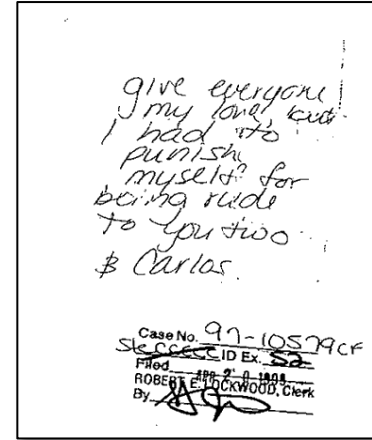 give everyone
my love, but
I had to
punish
myself for
being rude
to you two
& Carlos.
Case No. 97-10579CF
ID Ex. 52
Filed
ROBERT E. LOCKWOOD, Clerk
By